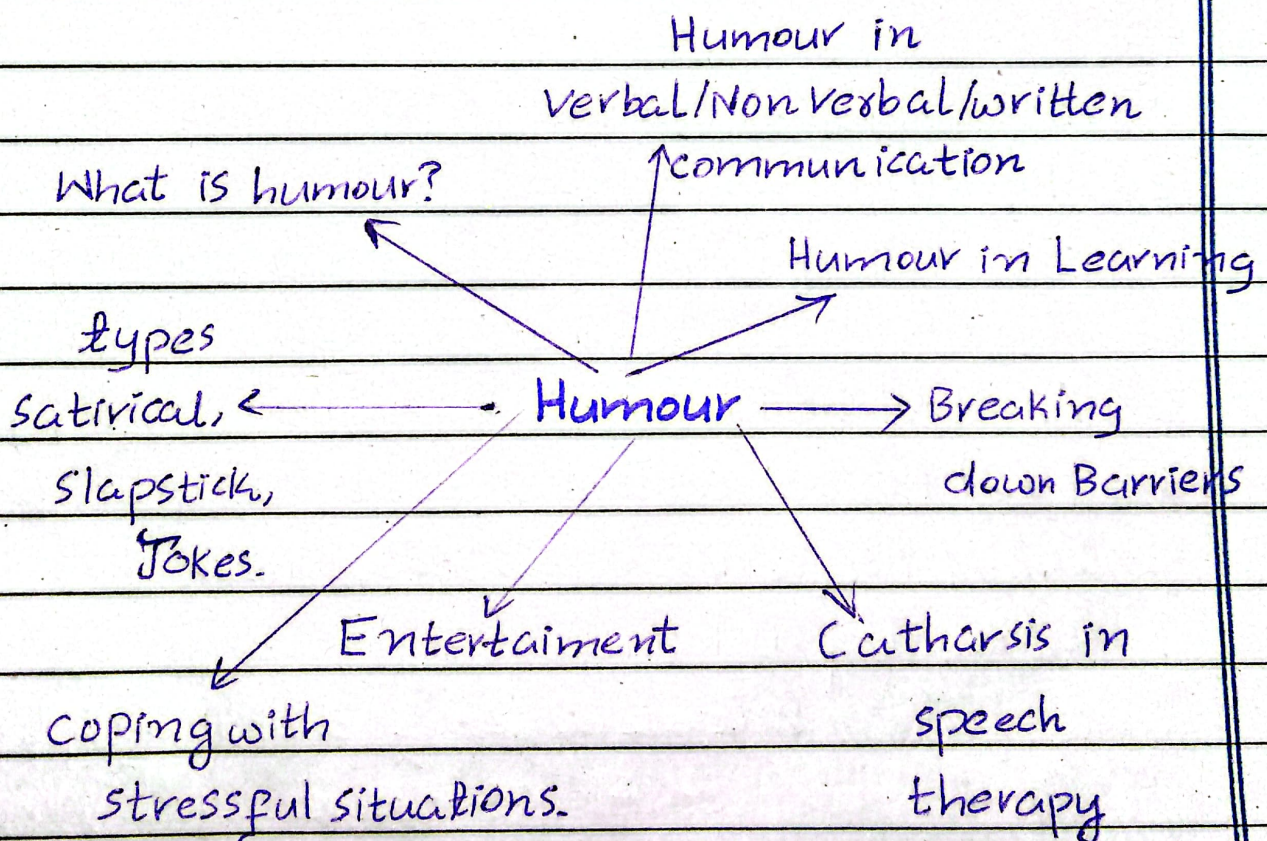 Humour in
Verbal/Non Verbal/written
communication
What is humour?
Humour in Learning
types
satirical,
slapstick,
Jokes.
Humour
Breaking
down Barriers
Entertaiment
Catharsis in
speech
therapy
coping with
stressful situations.